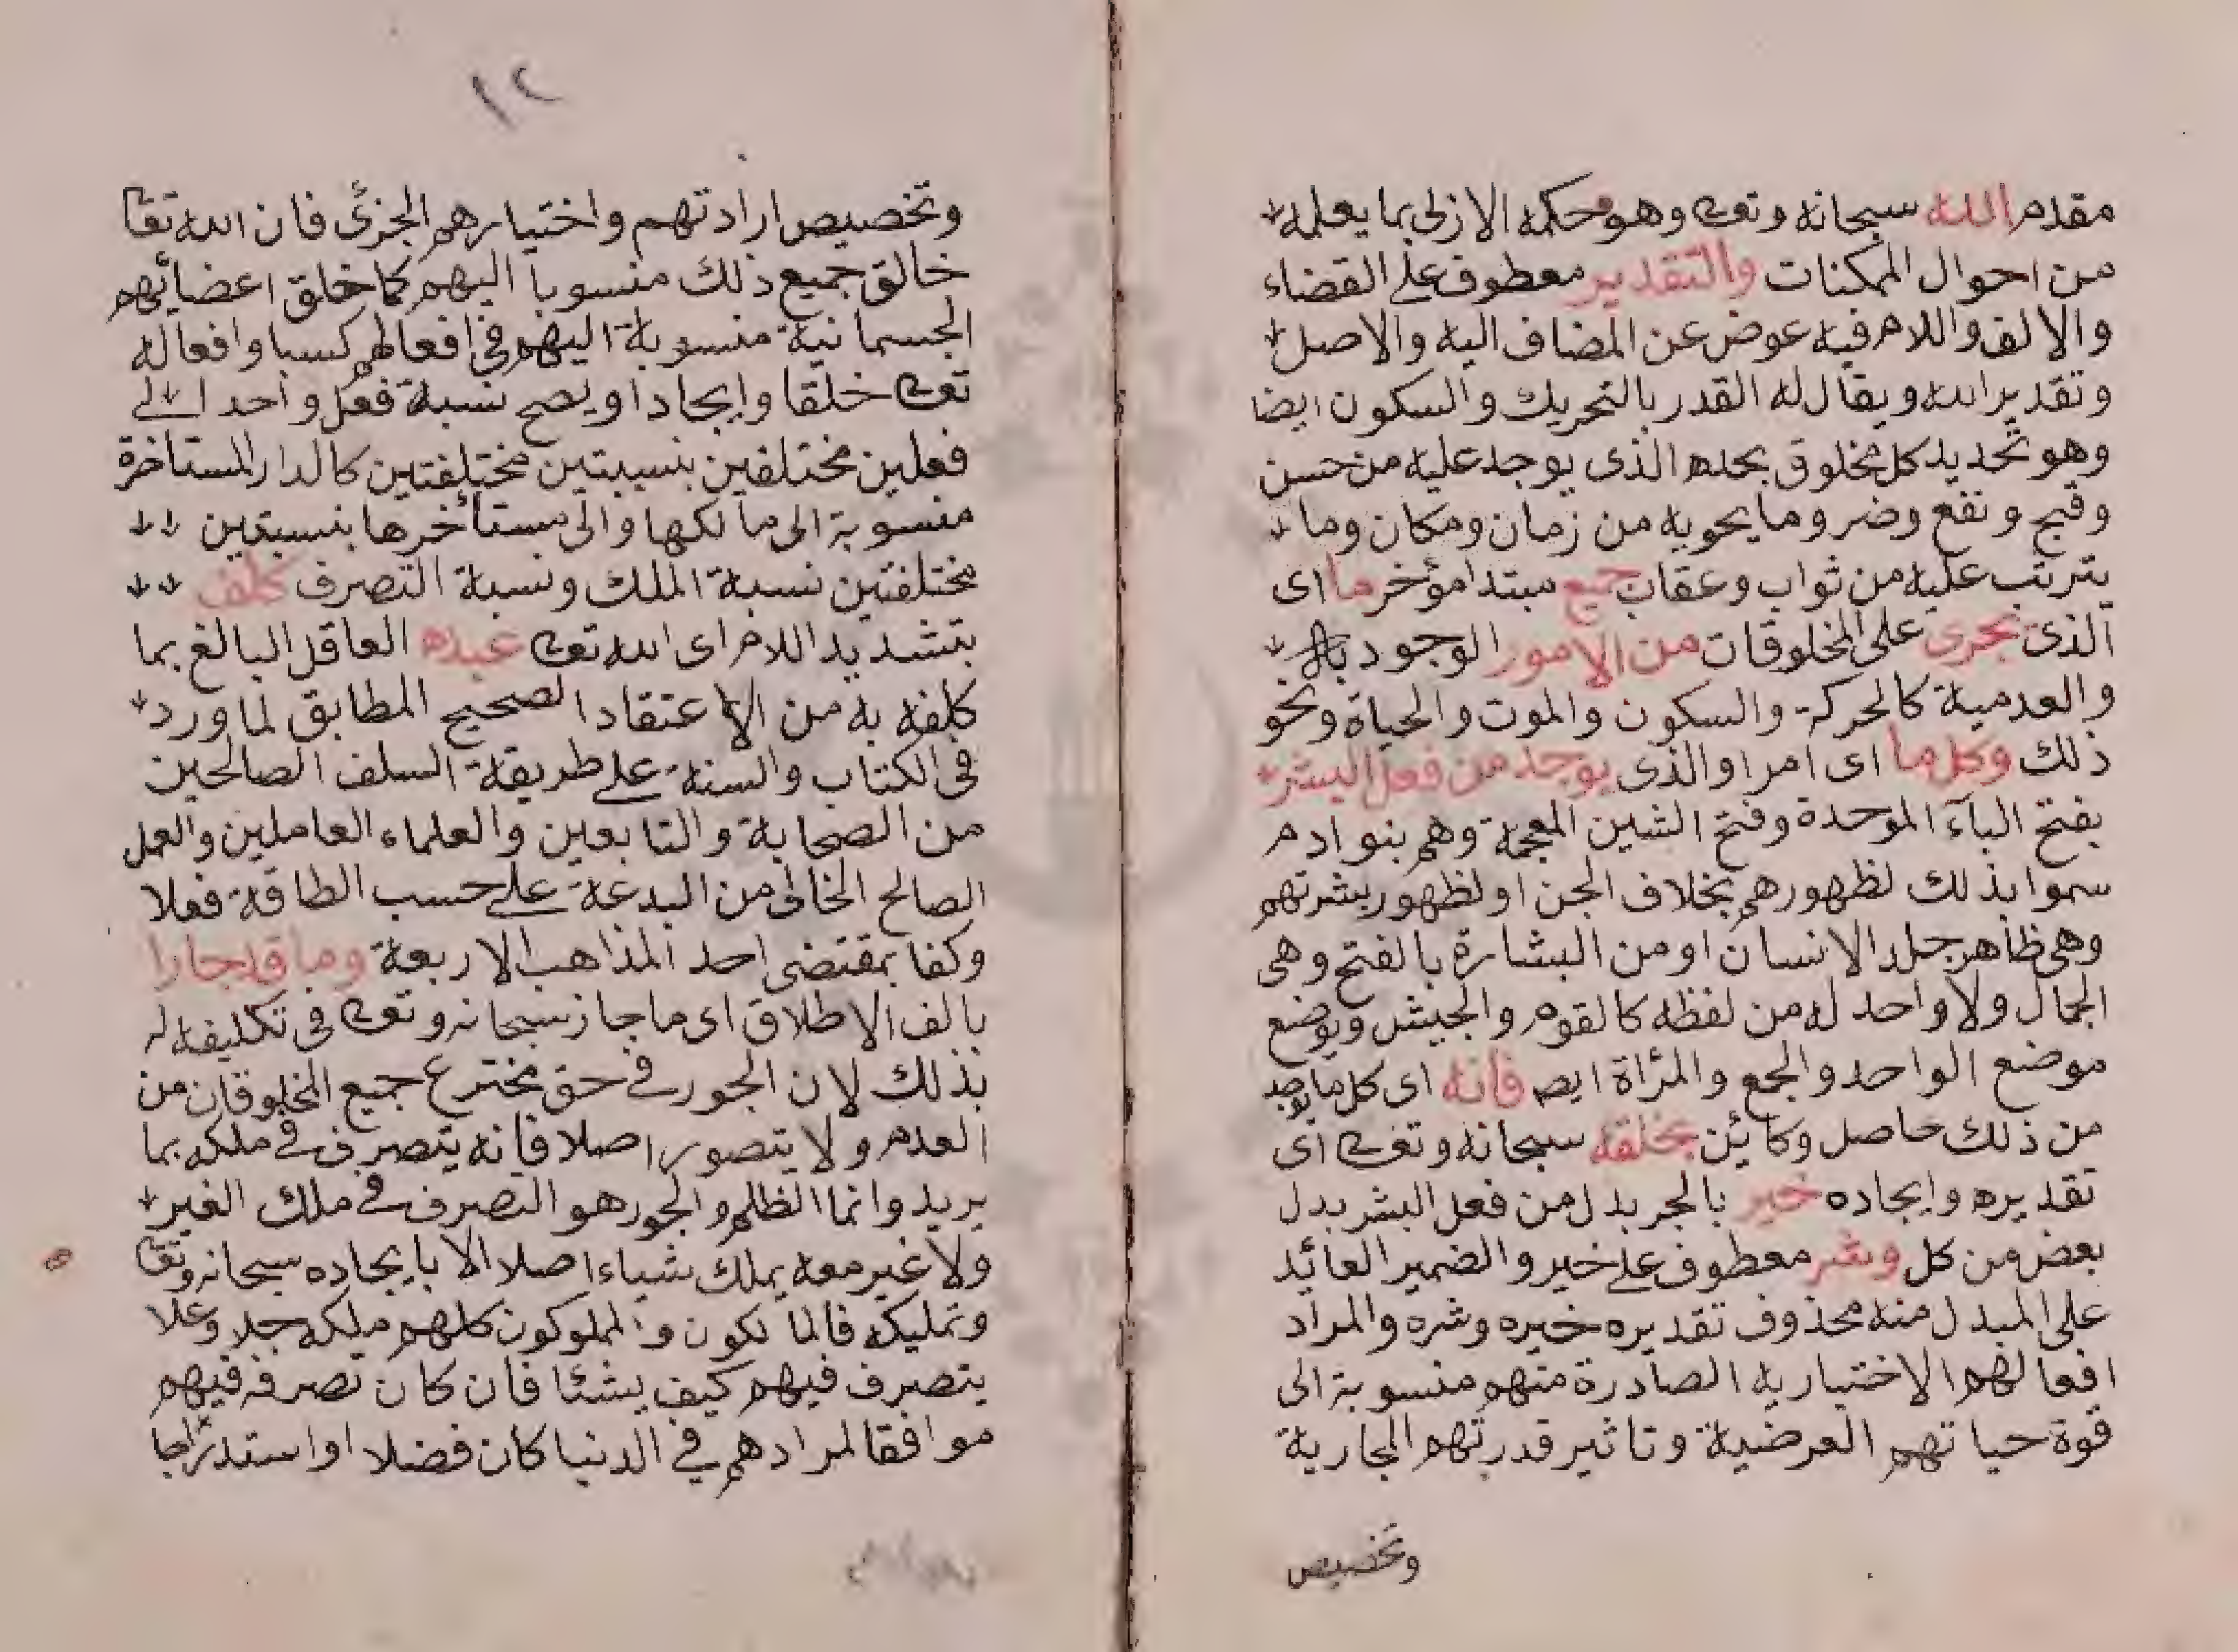 مقدم الله سبحانه وتعالى وهو حكمه الازلى بما يعلمه
من احوال الممكنات والتقدير معطوف على القضاء
والالف واللام فيه عوض عن المضاف اليه والاصل
وتقدير الله ويقال له القدر بالتحريك والسكون ايضا
وهو تحديد كل مخلوق بحده الذى يوجد عليه من حسن
وقبح ونفع وضر وما يحويه من زمان ومكان وما
يترتب عليه من ثواب وعقاب جميع مبتدا مؤخر ما اى
الذى يجرى على المخلوقات من الامور الوجود
والعدمية كالحركة والسكون والموت والحياة ونحو
ذلك وكل ما اى امر او الذى يوجد من فعل البشر
بفتح الباء الموحدة وفتح الشين المعجمة وهم بنو ادم
سموا بذلك لظهورهم بخلاف الجن او لظهور بشرتهم
وهى ظاهر جلد الانسان او من البشارة بالفتح وهى
الجمال ولا واحد له من لفظه كالقوم والجيش ويوضع
موضع الواحد والجمع والمرأة ايضـ فانه اى كل ما يوجد
من ذلك حاصل وكائن بخلقه سبحانه وتعالى اى
تقديره وايجاده خير بالجر بدل من فعل البشر بدل
بعض من كل وشر معطوف على خير والضمير العائد
على المبدل منه محذوف تقديره خيره وشره والمراد
افعالهم الاختياريه الصادرة منهم منسوبة الى
قوة حياتهم العرضية وتاثير قدرتهم المجارية
وتخصيص
١٢
وتخصيص ارادتهم واختيارهم الجزئ فان الله تعا
خالق جميع ذلك منسوبا اليهم كما خلق اعضائهم
الجسمانية منسوبة اليهم فى افعالهم كسبا وافعاله
تعالى خلقا وايجادا ويصح نسبة فعل واحد الى
فعلين مختلفين بنسبتين مختلفتين كالدار المستاخرة
منسوبة الى مالكها والى مستأخرها بنسبتين
مختلفتين نسبة الملك ونسبة التصرف كلف
بتشديد اللام اى الله تعالى عبده العاقل البالغ بما
كلفه به من الاعتقاد الصحيح المطابق لما ورد
فى الكتاب والسنة على طريقة السلف الصالحين
من الصحابة والتابعين والعلماء العاملين والعمل
الصالح الخالى من البدعة على حسب الطاقة فعلا
وكفا بمقتضى احد المذاهب الاربعة وما قد جارا
بالف الاطلاق اى ما جار سبحانه وتعالى فى تكليفه له
بذلك لان الجور فى حق مخترع جميع المخلوقات من
العدم ولا يتصور اصلا فانه يتصرف فى ملكه بما
يريد وانما الظلم والجور هو التصرف فى ملك الغير
ولا غير معه يملك شياء اصلا الا بايجاده سبحانه وتعا
وتمليكه فالما لكون والمملوكون كلهم ملكه جلا وعلا
يتصرف فيهم كيف يشئا فان كان تصرفه فيهم
موافقا لمرادهم فى الدنيا كان فضلا او استدراجا